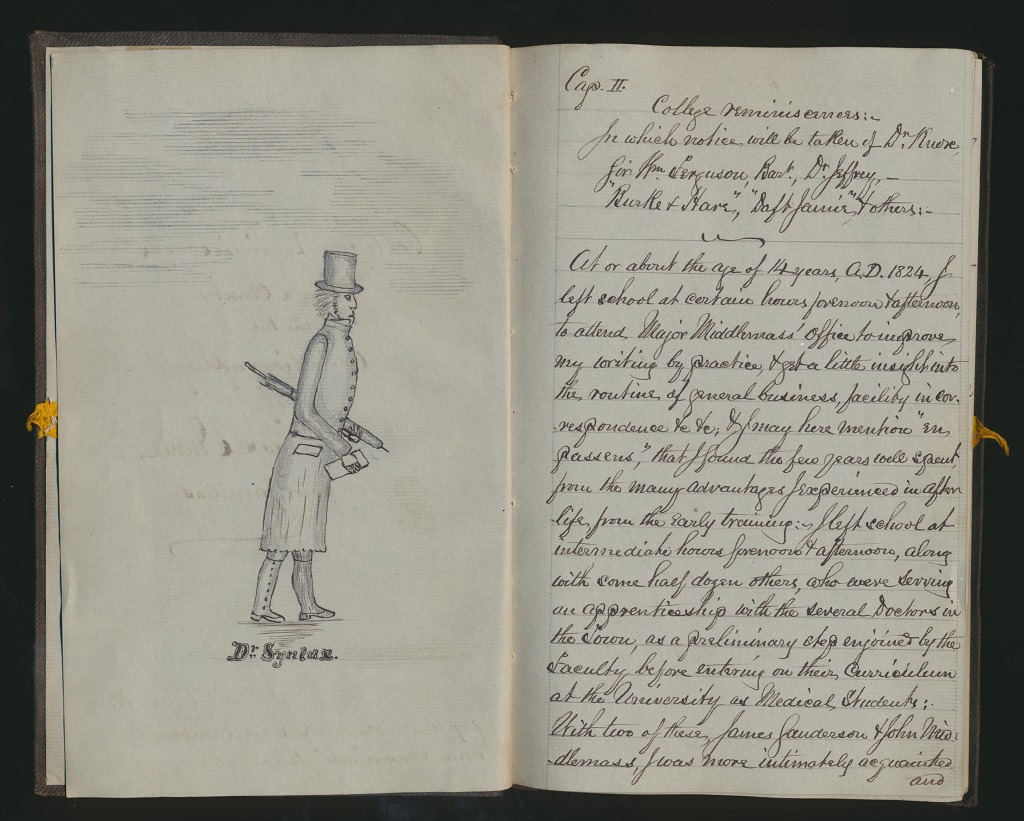 Dr. Syntax.
Cap. II.
College reminiscences:-
In which notice will be taken of Dr. Knox,
Sir Wm Ferguson, Bart., Dr. Jeffrey,-
"Burke & Hare", "Daft Jamie", & others:-
At or about the age of 14 years, A.D. 1824, I
left school at certain hours forenoon & afternoon,
to attend Major Middlemass' office to improve
my writing by practice, & get a little insight into
the routine of general business, facility in cor-
-respondence &c &c; & I may here mention "en
passens", that I found the few years well spent,
from the many advantages I experienced in after
life, from the early training:- I left school at
intermediate hours forenoon & afternoon, along
with some half dozen others, who were serving
an apprenticeship with the several Doctors in
the Town, as a preliminary step enjoined by the
Faculty before entering on their Curriculum
at the University as Medical Students:
With two of these, James Sanderson & John Mid-
-dlemass, I was more intimately acquainted
and